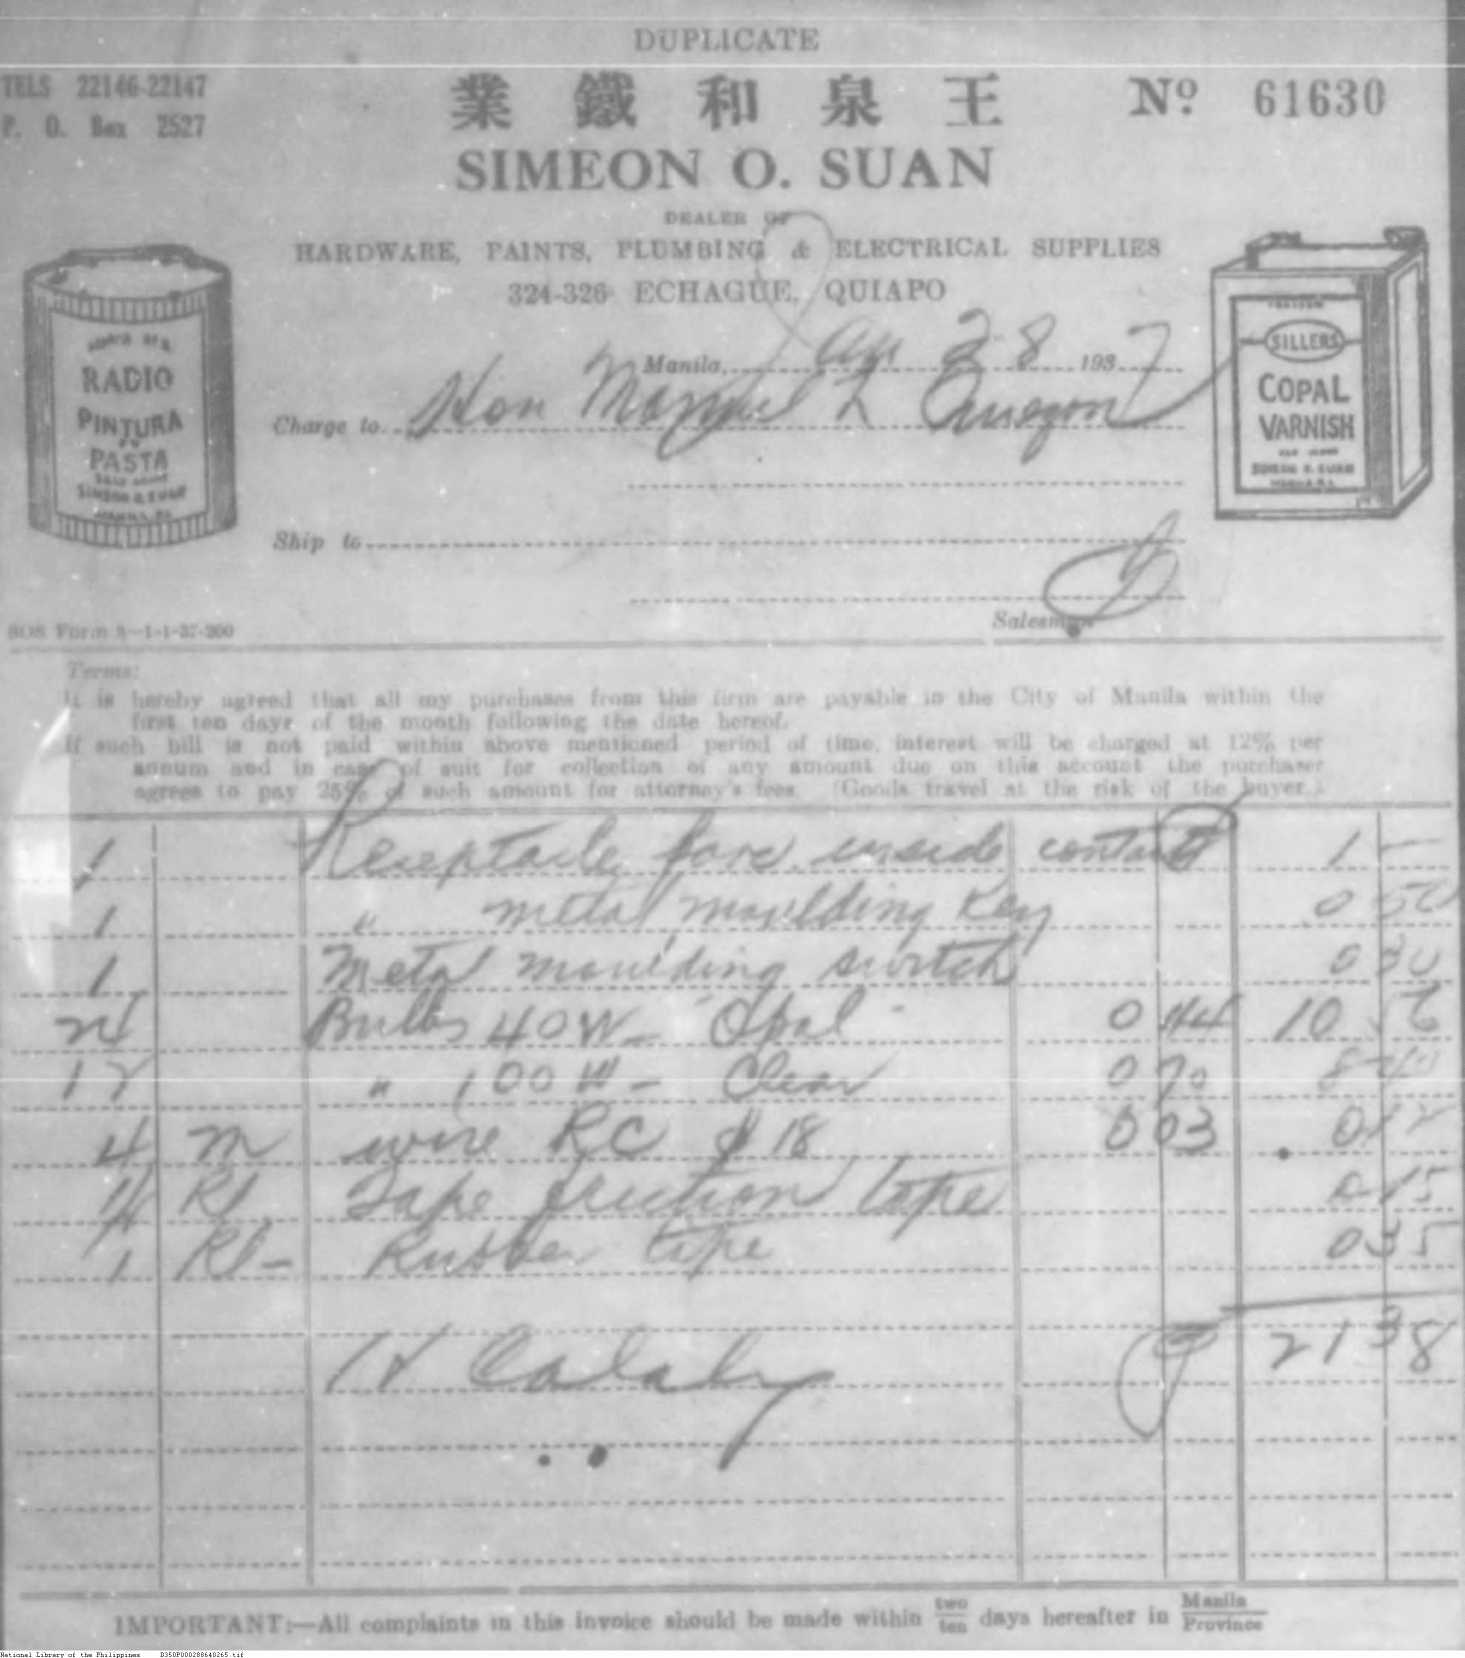 DUPLICATE
TELS 22146-22147
P. O. Box 2527
業 鐵 和 泉 王
Nº 61630
SIMEON O. SUAN
DEALER OF
HARDWARE, PAINTS, PLUMBING & ELECTRICAL SUPPLIES
324-326 ECHAGUE, QUIAPO
RADIO
PINTURA
EN
PASTA
SOLE AGENT
SIMEON O. SUAN
MANILA, P.I.
SILLERS
COPAL
VARNISH
SIMEON O. SUAN
MANILA P.I.
Manila, Jan 28 1937
Charge to Hon Manuel L Quezon
Ship to
Salesman
SOS Form 8—1-1-37-200
Terms:
It is hereby agreed that all my purchases from this firm are payable in the City of Manila within the
first ten days of the month following the date hereof.
If such bill is not paid within above mentioned period of time, interest will be charged at 12% per
annum and in case of suit for collection of any amount due on this account the purchaser
agrees to pay 25% of such amount for attorney's fees. (Goods travel at the risk of the buyer.)
1 Receptacle porc. inside contact 1 —
1 " metal moulding key 0 50
1 Metal moulding switch 0 30
24 Bulbs 40 W — Opal 0 44 10 56
12 " 100 W — Clear 0 70 8 40
4 M wire RC # 18 0 03 0 12
1/4 Rl Tape friction tape 0 15
1 Rl — Rubber tape 0 35
21 38
IMPORTANT:—All complaints in this invoice should be made within two/ten days hereafter in Manila/Province
National Library of the Philippines D350P000288640265.tif